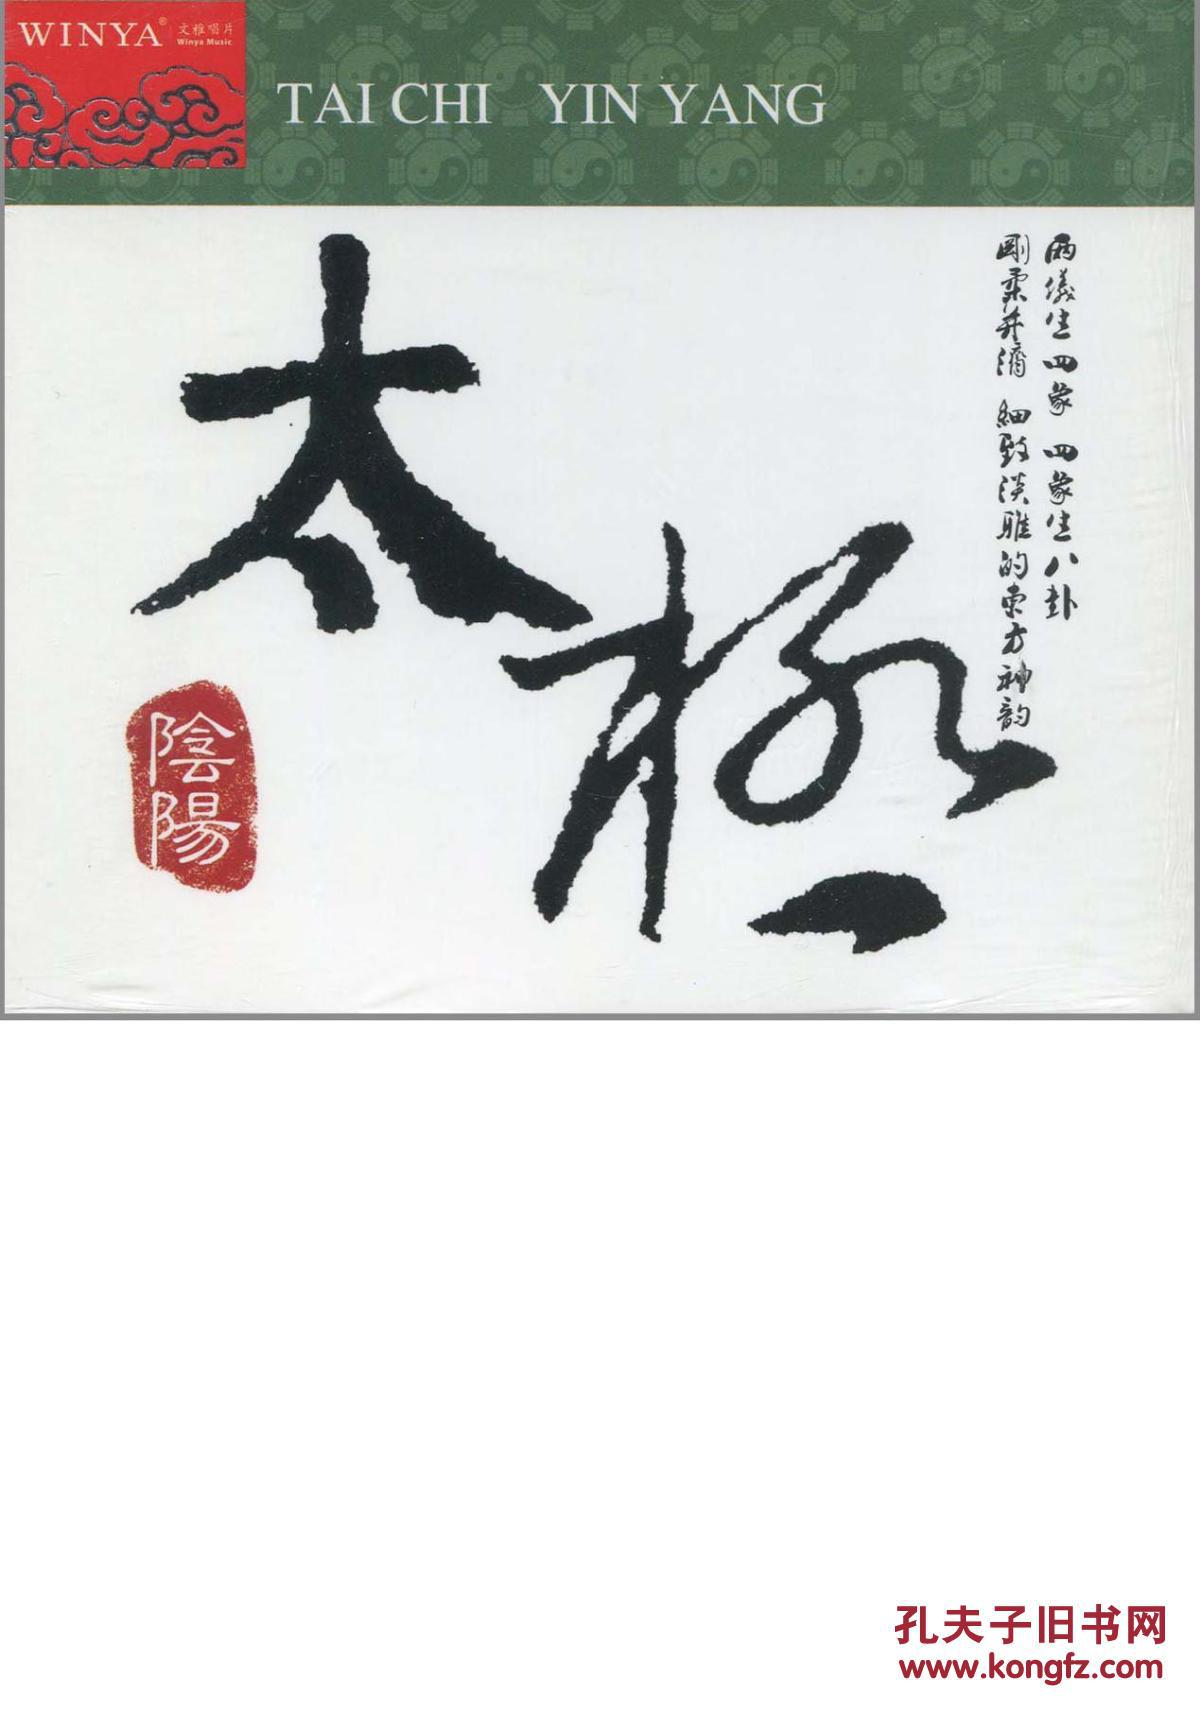 WINYA® 文雅唱片
Winya Music
TAI CHI YIN YANG
太极
陰陽
两儀生四象 四象生八卦
剛柔并濟 細致淡雅的東方神韵
孔夫子旧书网
www.kongfz.com